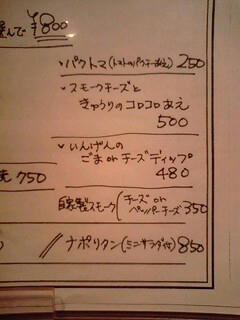 選んで ¥800
・パクトマ(トマトのパクチーあえ) 250
・スモークチーズと
きゅうりのコロコロあえ
500
・いんげんの
ごま or チーズディップ
480
750
自家製スモーク(チーズ or
ペッパーチーズ 350
// ナポリタン(ミニサラダ付) 850